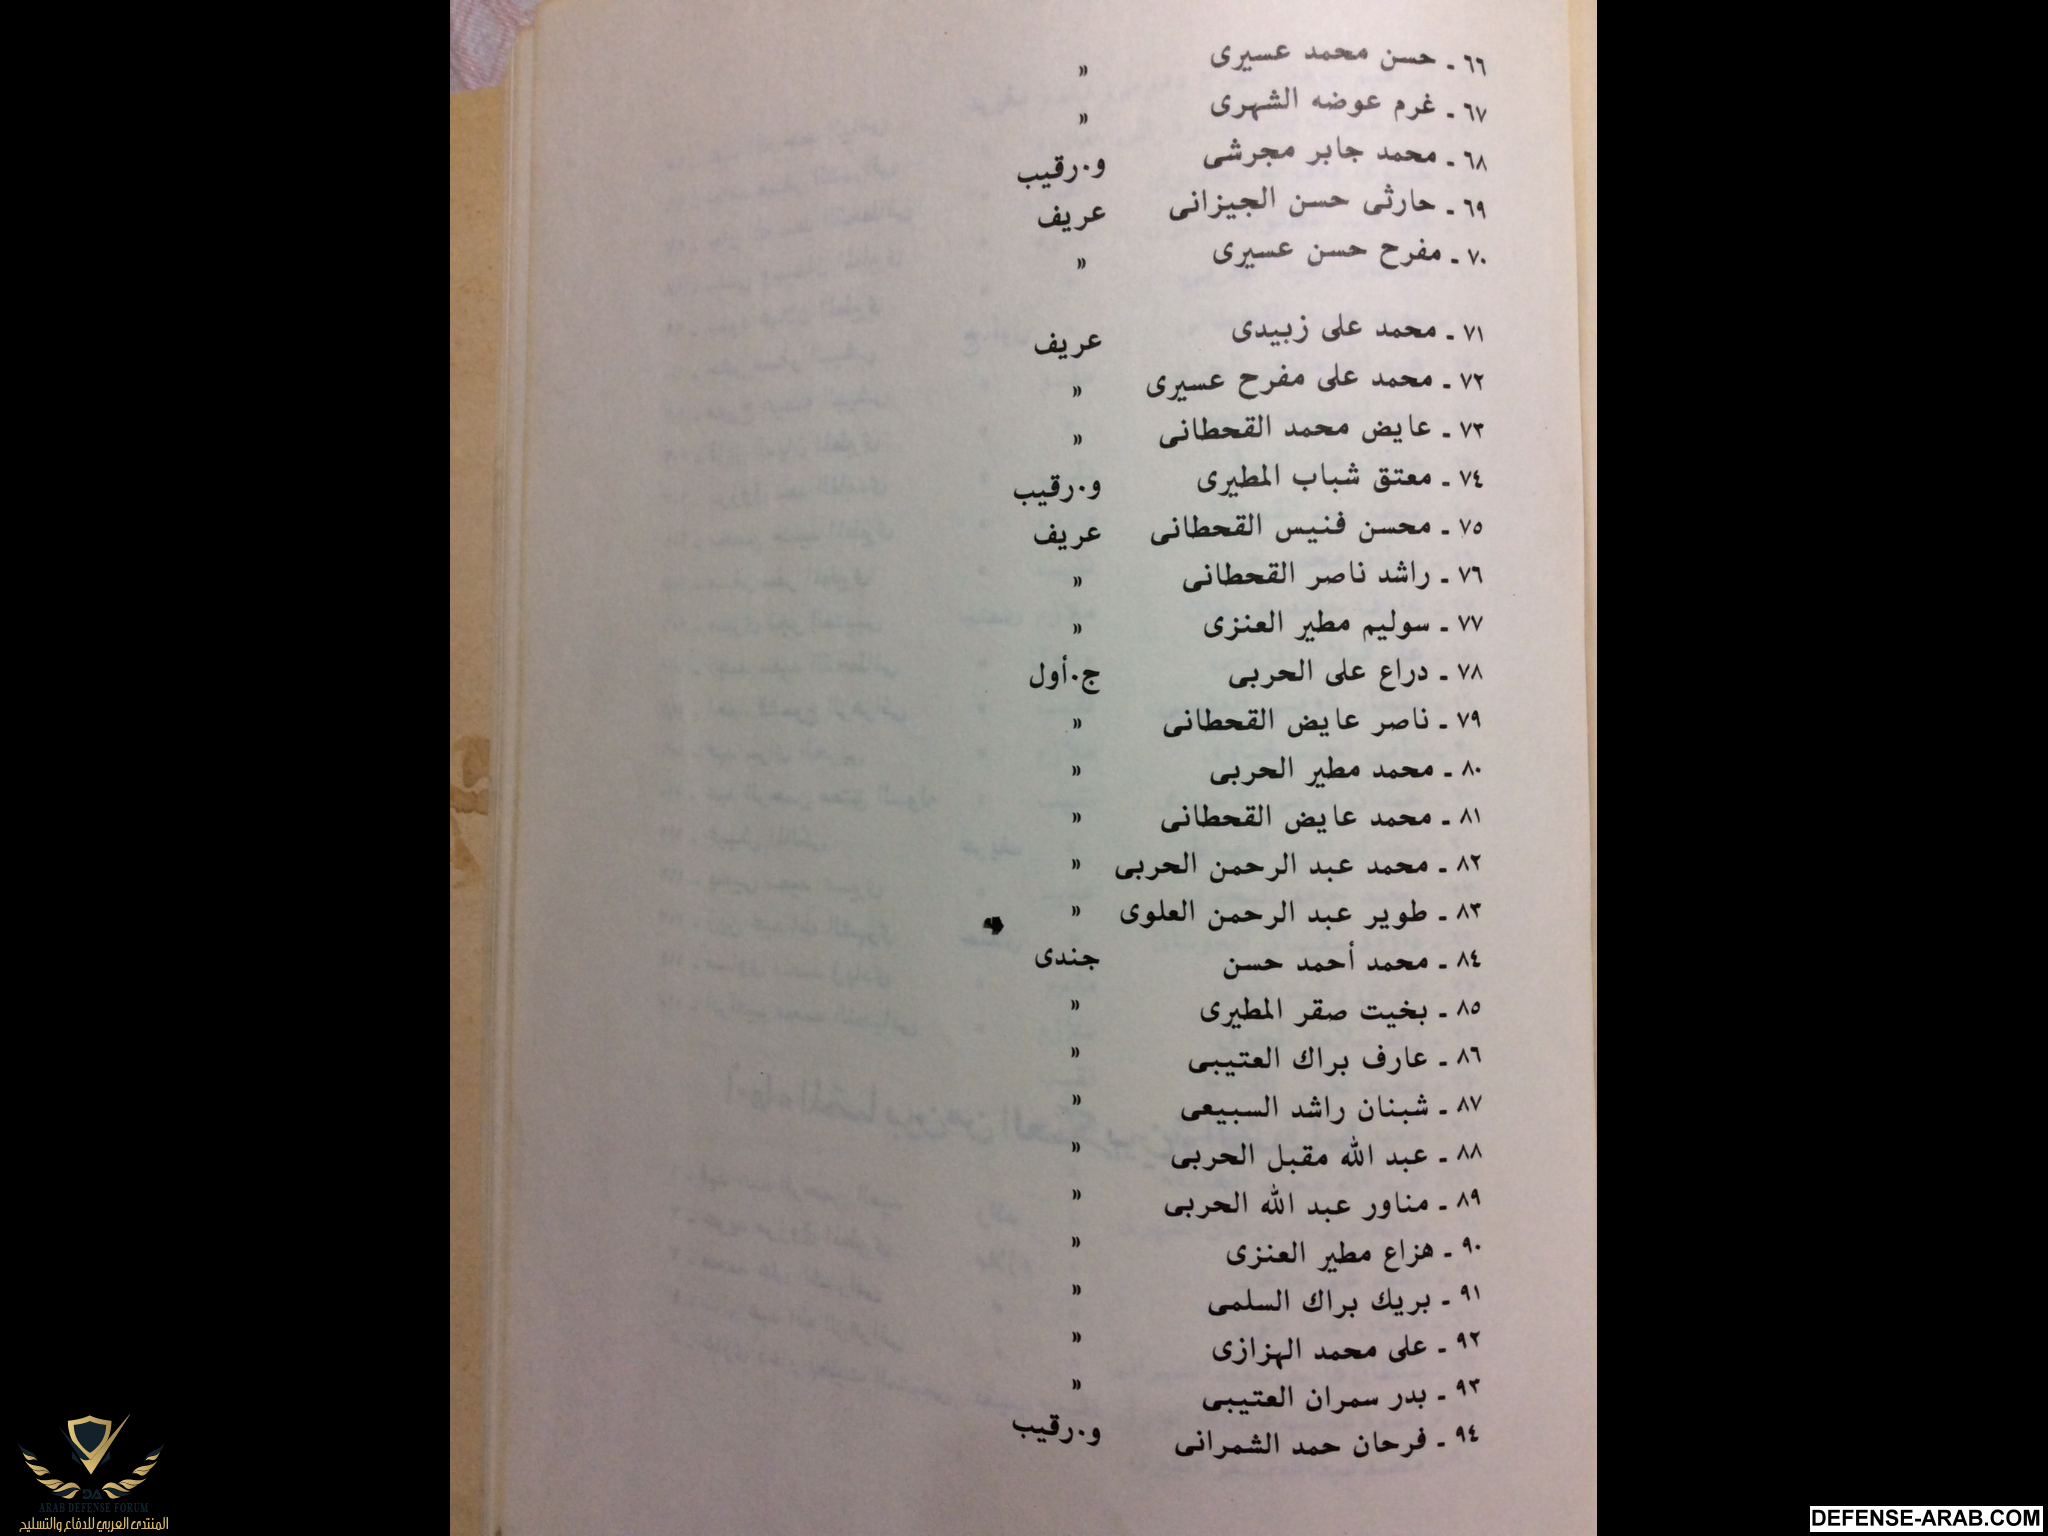 ٦٦ - حسن محمد عسيرى »
٦٧ - غرم عوضه الشهرى »
٦٨ - محمد جابر مجرشى و.رقيب
٦٩ - حارثى حسن الجيزانى عريف
٧٠ - مفرح حسن عسيرى »
٧١ - محمد على زبيدى عريف
٧٢ - محمد على مفرح عسيرى »
٧٣ - عايض محمد القحطانى »
٧٤ - معتق شباب المطيرى و.رقيب
٧٥ - محسن فنيس القحطانى عريف
٧٦ - راشد ناصر القحطانى »
٧٧ - سوليم مطير العنزى »
٧٨ - دراع على الحربى ج.أول
٧٩ - ناصر عايض القحطانى »
٨٠ - محمد مطير الحربى »
٨١ - محمد عايض القحطانى »
٨٢ - محمد عبد الرحمن الحربى »
٨٣ - طوير عبد الرحمن العلوى »
٨٤ - محمد أحمد حسن جندى
٨٥ - بخيت صقر المطيرى »
٨٦ - عارف براك العتيبى »
٨٧ - شبنان راشد السبيعى »
٨٨ - عبد الله مقبل الحربى »
٨٩ - مناور عبد الله الحربى »
٩٠ - هزاع مطير العنزى »
٩١ - بريك براك السلمى »
٩٢ - على محمد الهزازى »
٩٣ - بدر سمران العتيبى »
٩٤ - فرحان حمد الشمرانى و.رقيب
DA
ARAB DEFENSE FORUM
المنتدى العربي للدفاع والتسليح
DEFENSE-ARAB.COM